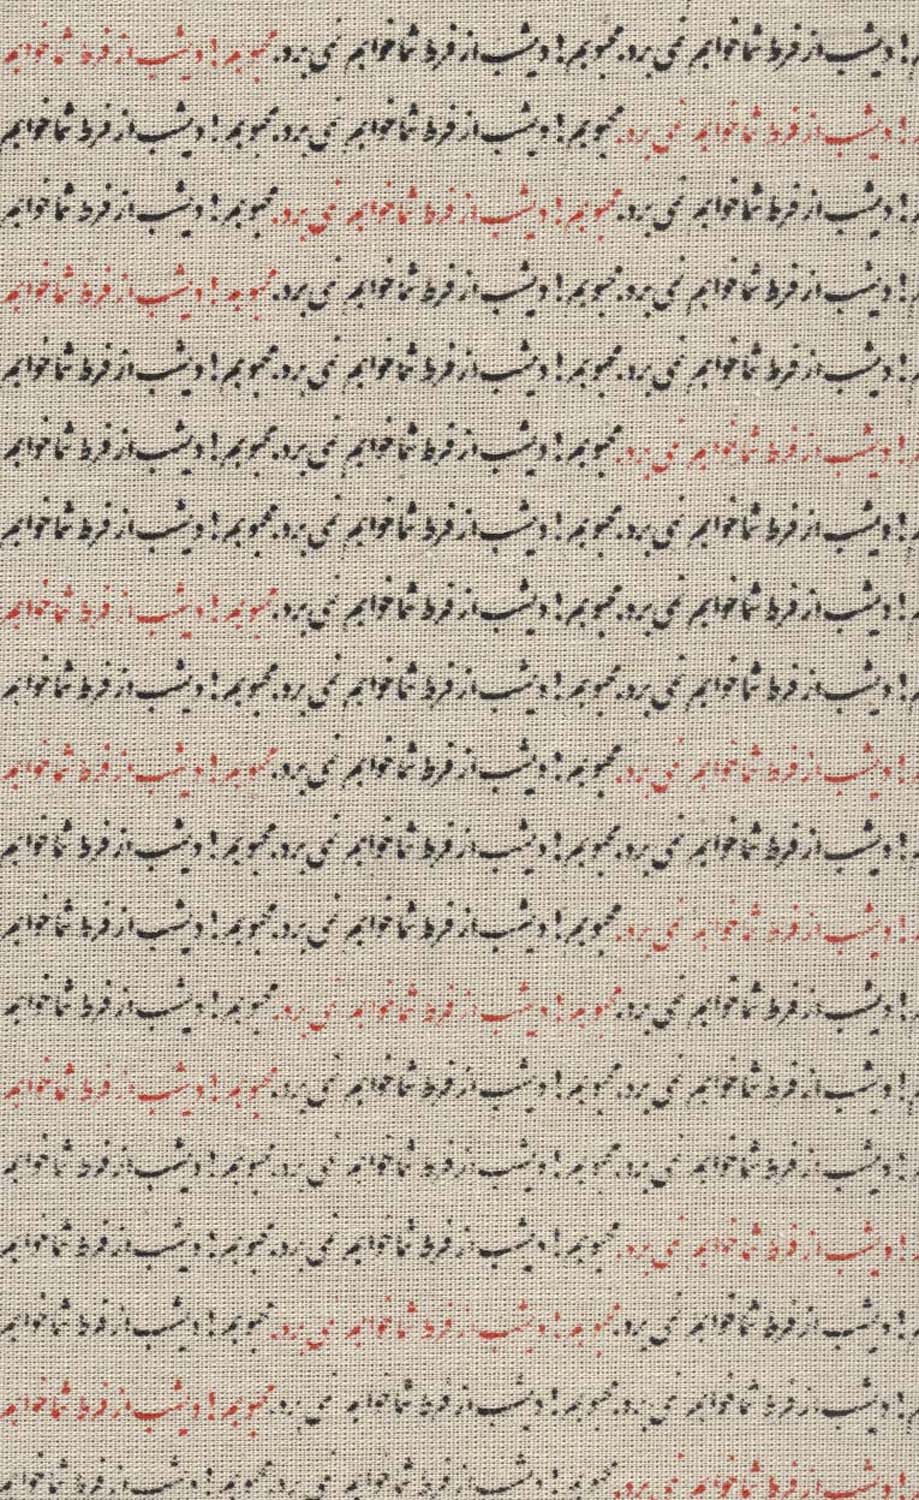 ! دیشب از فرط شما خوابم نمی برد. محبوبم! دیشب از فرط شما خوابم نمی برد. محبوبم! دیشب از فرط شما خوابم
! دیشب از فرط شما خوابم نمی برد. محبوبم! دیشب از فرط شما خوابم نمی برد. محبوبم! دیشب از فرط شما خوابم
! دیشب از فرط شما خوابم نمی برد. محبوبم! دیشب از فرط شما خوابم نمی برد. محبوبم! دیشب از فرط شما خوابم
! دیشب از فرط شما خوابم نمی برد. محبوبم! دیشب از فرط شما خوابم نمی برد. محبوبم! دیشب از فرط شما خوابم
! دیشب از فرط شما خوابم نمی برد. محبوبم! دیشب از فرط شما خوابم نمی برد. محبوبم! دیشب از فرط شما خوابم
! دیشب از فرط شما خوابم نمی برد. محبوبم! دیشب از فرط شما خوابم نمی برد. محبوبم! دیشب از فرط شما خوابم
! دیشب از فرط شما خوابم نمی برد. محبوبم! دیشب از فرط شما خوابم نمی برد. محبوبم! دیشب از فرط شما خوابم
! دیشب از فرط شما خوابم نمی برد. محبوبم! دیشب از فرط شما خوابم نمی برد. محبوبم! دیشب از فرط شما خوابم
! دیشب از فرط شما خوابم نمی برد. محبوبم! دیشب از فرط شما خوابم نمی برد. محبوبم! دیشب از فرط شما خوابم
! دیشب از فرط شما خوابم نمی برد. محبوبم! دیشب از فرط شما خوابم نمی برد. محبوبم! دیشب از فرط شما خوابم
! دیشب از فرط شما خوابم نمی برد. محبوبم! دیشب از فرط شما خوابم نمی برد. محبوبم! دیشب از فرط شما خوابم
! دیشب از فرط شما خوابم نمی برد. محبوبم! دیشب از فرط شما خوابم نمی برد. محبوبم! دیشب از فرط شما خوابم
! دیشب از فرط شما خوابم نمی برد. محبوبم! دیشب از فرط شما خوابم نمی برد. محبوبم! دیشب از فرط شما خوابم
! دیشب از فرط شما خوابم نمی برد. محبوبم! دیشب از فرط شما خوابم نمی برد. محبوبم! دیشب از فرط شما خوابم
! دیشب از فرط شما خوابم نمی برد. محبوبم! دیشب از فرط شما خوابم نمی برد. محبوبم! دیشب از فرط شما خوابم
! دیشب از فرط شما خوابم نمی برد. محبوبم! دیشب از فرط شما خوابم نمی برد. محبوبم! دیشب از فرط شما خوابم
! دیشب از فرط شما خوابم نمی برد. محبوبم! دیشب از فرط شما خوابم نمی برد. محبوبم! دیشب از فرط شما خوابم
! دیشب از فرط شما خوابم نمی برد. محبوبم! دیشب از فرط شما خوابم نمی برد. محبوبم! دیشب از فرط شما خوابم
! دیشب از فرط شما خوابم نمی برد. محبوبم! دیشب از فرط شما خوابم نمی برد. محبوبم! دیشب از فرط شما خوابم